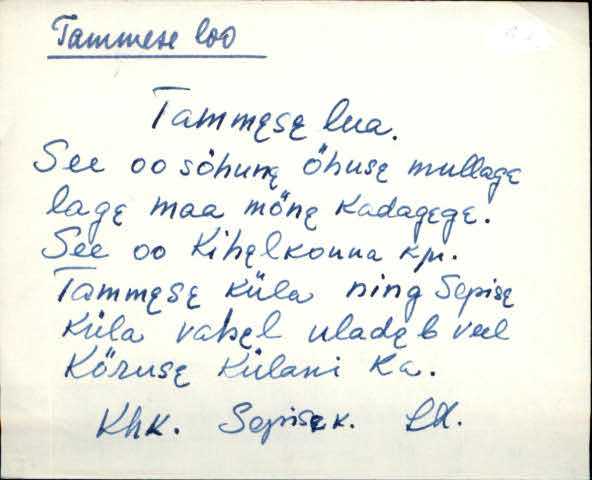 Tammese loo
Tammęsę lua.
See oo söhunę öhusę mullagę
lagę maa mönę kadagęgę.
See oo Kihęlkonna kpn.
Tammęsę küla ning Sepisę
küla vahęl uladęb veel
Körusę külani ka.
Khk. Sepisę k.